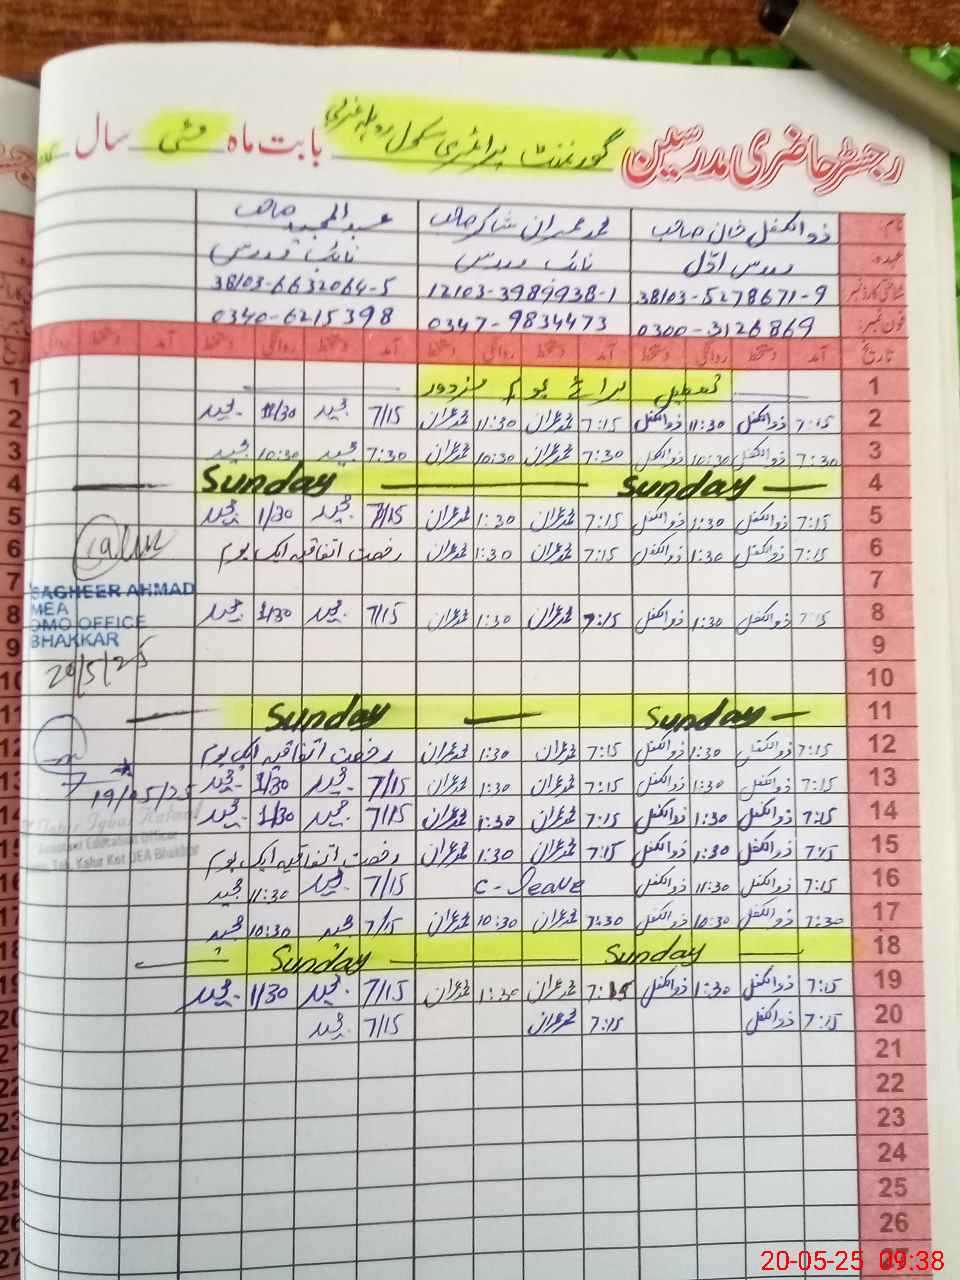 رجسٹر حاضری مدرسین گورنمنٹ پرائمری سکول غربی بابت ماہ مئی سال
نام: ذوالکفل خان صاحب محمد عمران شاکر صاحب عبدالمجید صاحب
عہدہ: مدرس اوّل نائب مدرس نائب مدرس
شناختی کارڈ نمبر 38103-5278671-9 12103-3989938-1 38103-6632064-5
فون نمبر: 0300-3126869 0347-9834473 0340-6215398
تاریخ آمد دستخط روانگی دستخط آمد دستخط روانگی دستخط آمد دستخط روانگی دستخط
1 تعطیل برائے یوم مزدور
2 7:15 ذوالکفل 11:30 ذوالکفل 7:15 محمد عمران 11:30 محمد عمران 7/15 مجید 11/30 مجید
3 7:30 ذوالکفل 10:30 ذوالکفل 7:30 محمد عمران 10:30 محمد عمران 7:30 مجید 10:30 مجید
4 Sunday Sunday
5 7:15 ذوالکفل 1:30 ذوالکفل 7:15 محمد عمران 1:30 محمد عمران 7/15 مجید 1/30 مجید
6 7:15 ذوالکفل 1:30 ذوالکفل 7:15 محمد عمران 1:30 محمد عمران رخصت اتفاقیہ ایک یوم
7
SAGHEER AHMAD
MEA
DMO OFFICE
BHAKKAR
20/5/25
8 7:15 ذوالکفل 1:30 ذوالکفل 7:15 محمد عمران 1:30 محمد عمران 7/15 مجید 1/30 مجید
9
10
11 Sunday Sunday
12 7:15 ذوالکفل 1:30 ذوالکفل 7:15 محمد عمران 1:30 محمد عمران رخصت اتفاقیہ ایک یوم
13 7:15 ذوالکفل 1:30 ذوالکفل 7:15 محمد عمران 1:30 محمد عمران 7/15 مجید 1/30 مجید
19/05/25
14 7:15 ذوالکفل 1:30 ذوالکفل 7:15 محمد عمران 1:30 محمد عمران 7/15 مجید 1/30 مجید
Assistant Education Officer
15 7:15 ذوالکفل 1:30 ذوالکفل 7:15 محمد عمران 1:30 محمد عمران رخصت اتفاقیہ ایک یوم
Kot DEA Bhakkar
16 7:15 ذوالکفل 11:30 ذوالکفل C-leave 7/15 مجید 11:30 مجید
17 7:30 ذوالکفل 10:30 ذوالکفل 7:30 محمد عمران 10:30 محمد عمران 7/15 مجید 10:30 مجید
18 Sunday Sunday
19 7:15 ذوالکفل 1:30 ذوالکفل 7:15 محمد عمران 1:30 محمد عمران 7/15 مجید 1/30 مجید
20 7:15 ذوالکفل 7:15 محمد عمران 7/15 مجید
21
22
23
24
25
26
27
20-05-25 09:38